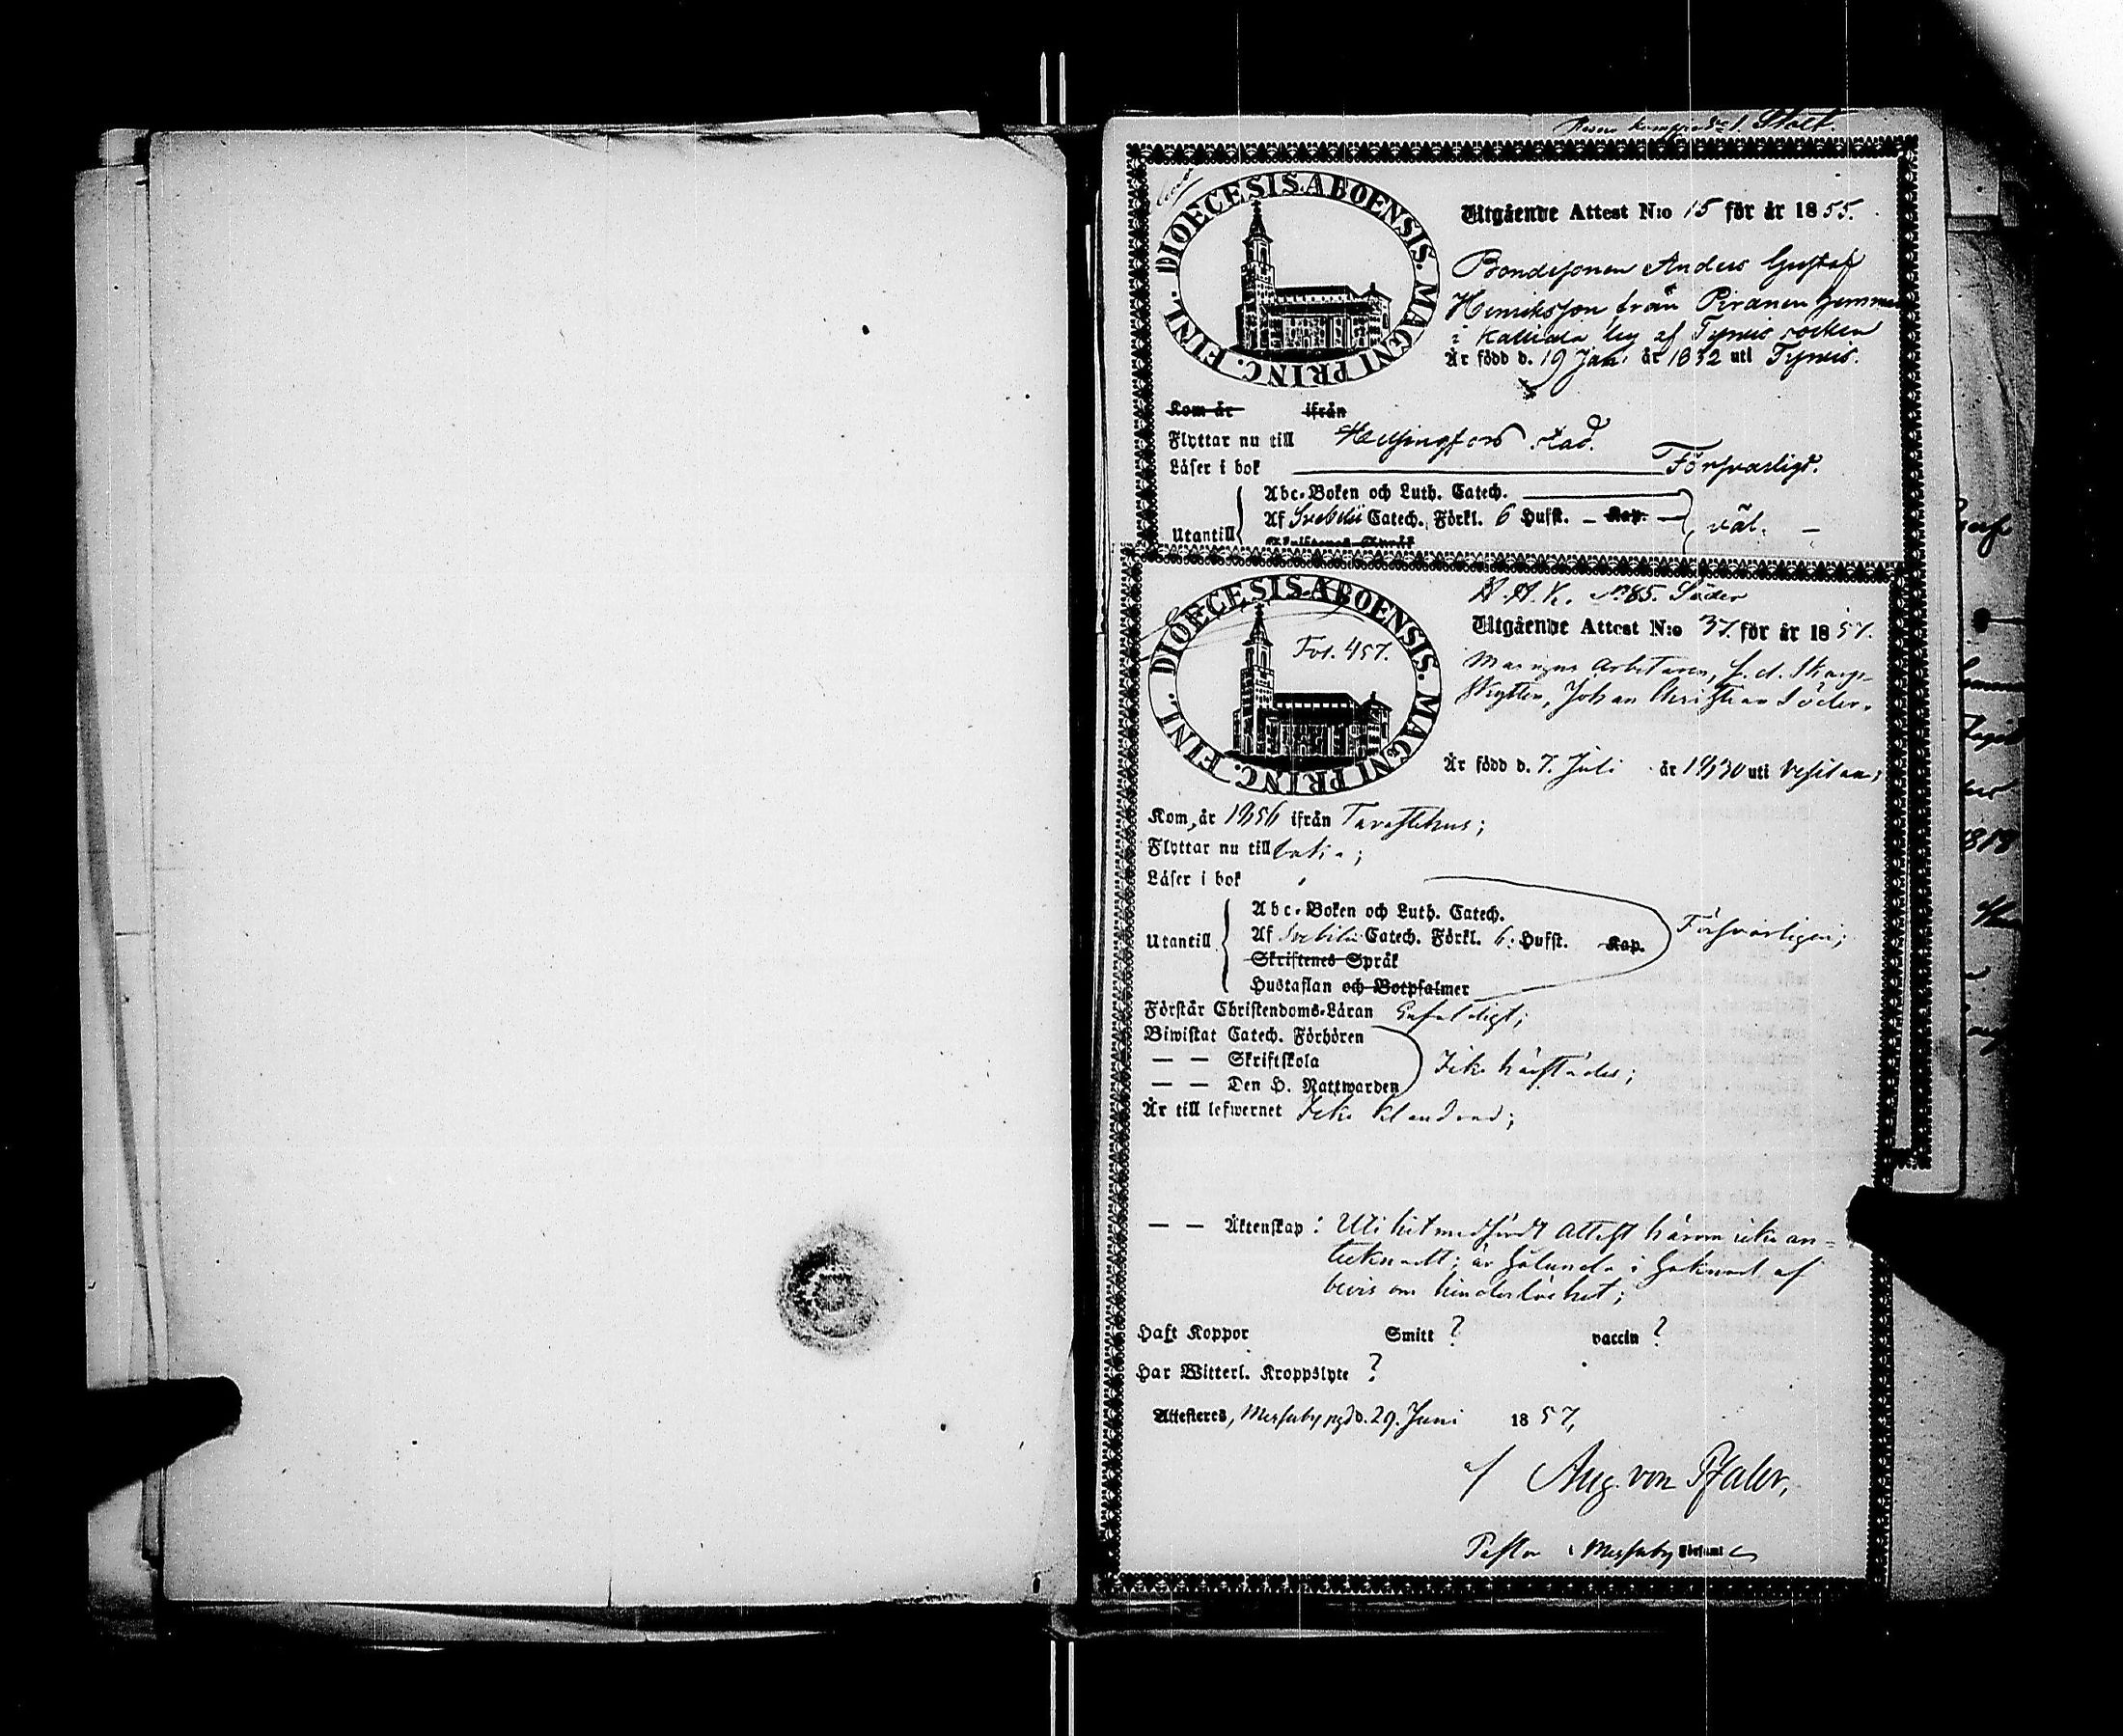 Stolt.
DIOECESIS ABOENSIS. MAGNI PRINC. FINL.
Utgående Attest N:o 15 för år 1855.
Bondesonen Anders Gustaf
Henriksson från Piranen hemman
i by af Tyrvis socken
Är född d. 19 Jan. år 1832 uti Tyrvis.
Kom år ifrån
Flyttar nu till Helsingfors stad.
Läser i bok Försvarligt.
Abc-Boken och Luth. Catech.
Utantill Af Svebelii Catech. Förkl. 6 Hufst. – Kap. – väl. –
Skriftenes Språk
DIOECESIS ABOENSIS. MAGNI PRINC. FINL.
Fol. 457.
N:o 85. Söder
Utgående Attest N:o 37. för år 1857.
arbetaren, f. d. Skarp-
skytten, Johan Christian Söder.
Är född d. 7. Juli år 1830 uti Vesilax;
Kom år 1856 ifrån Tavastehus;
Flyttar nu till
Läser i bok
Abc-Boken och Luth. Catech.
Utantill Af Svebilii Catech. Förkl. 6. Hufst. Kap. Försvarligen;
Skriftenes Språk
Hustaflan och Botpsalmer
Förstår Christendoms-Läran Enfaldigt;
Biwistat Catech. Förhören
— — Skriftskola Icke härstädes;
— — Den H. Nattwarden
Är till lefwernet Icke klandrad;
— — Äktenskap: Uti hitmedfördt attest härom icke an-
tecknadt; är sålunda i saknad af
bevis om hinderlöshet;
Haft Koppor Smitt ? vaccin ?
Har Witterl. Kroppslyte ?
Attesteres, Messuby pgd d. 29. Juni 1857,
af Aug. von Pfaler,
Pastor i Messuby Församl